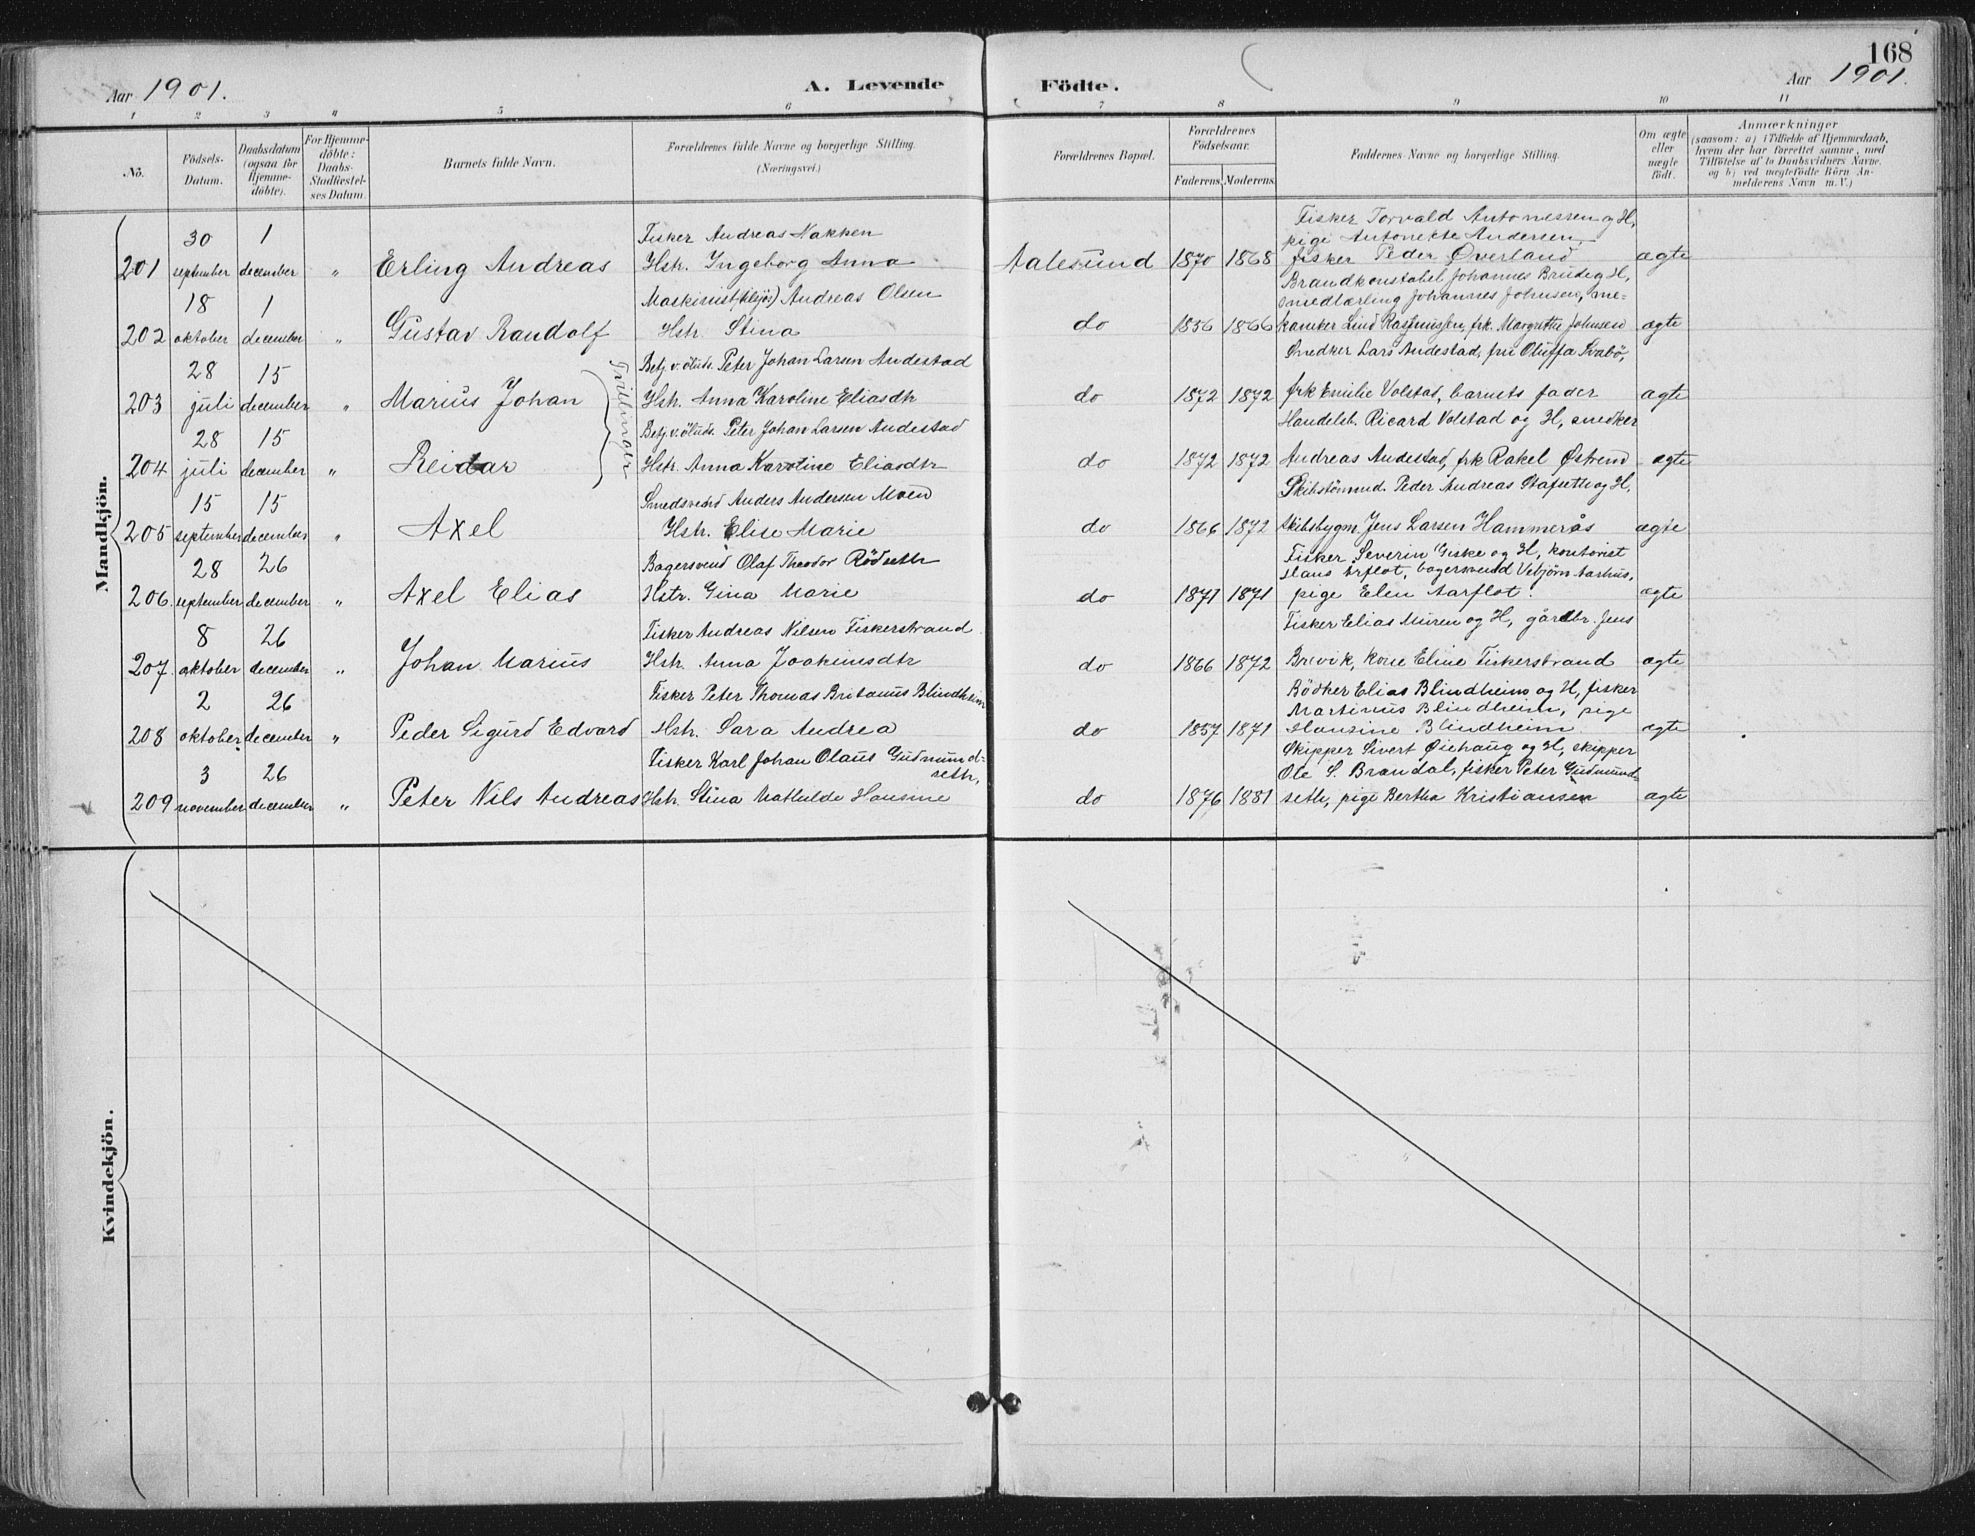 168
Aar 1901.
A. Levende
Födte.
Aar 1901.
1 2 3 4 5 6 7 8 9 10 11
No.
Födsels-Datum.
Daabsdatum (ogsaa for Hjemme-döbte).
For Hjemme-döbte: Daabs-Stadfæstel-ses Datum.
Barnets fulde Navn.
Forældrenes fulde Navne og borgerlige Stilling. (Næringsvei.)
Forældrenes Bopæl.
Forældrenes Födselsaar.
Faderens. Moderens.
Faddernes Navne og borgerlige Stilling.
Om ægte eller uægte födt.
Anmærkninger
(saasom: a) i Tilfælde af Hjemmedaab,
hvem der har forrettet samme, med
Tilföielse af to Daabsvidners Navne,
og b) ved uægtefödte Börn An-
melderens Navn m. V.)
Mandkjön.
201 30 september 1 december " Erling Andreas
Fisker Andreas Nakken
Hstr. Ingeborg Anna
Aalesund 1870 1868
Fisker Torvald Antonessen og H,
pige Antonette Andersen,
fisker Peder Øverland
ægte
202 18 oktober 1 december " Gustav Randolf
Maskinist Andreas Olsen
Hstr. Stina
do 1856 1866
Brandkonstabel Johannes Brude og H,
smedlærling Johannes Johnsen, me-
kaniker Lind Rasmussen, frk. Margrethe Johnsen
ægte
203 28 juli 15 december " Marius Johan
Tvillinger
Betj. v. öluds. Peter Johan Larsen Andestad
Hstr. Anna Karoline Eliasdtr
do 1872 1872
Smedker Lars Andestad, fru Oluffa Svabö,
frk Emilie Volstad, barnets fader
ægte
204 28 juli 15 december " Reidar
Betj. v. öluds. Peter Johan Larsen Andestad
Hstr. Anna Karoline Eliasdtr
do 1872 1872
Handelsb. Ricard Volstad og H, snedker
Andreas Andestad, frk Rakel Østrem
ægte
205 15 september 15 december " Axel
Smedsvend Anders Andersen Moen
Hstr. Elise Marie
do 1866 1872
Skibstömmd. Peder Andreas Stafseth og H,
skibsbygm Jens Larsen Hammerås
ægte
206 28 september 26 december " Axel Elias
Bagersvend Olaf Theodor Rödseth
Hstr. Gina Marie
do 1871 1871
Fisker Severin Giske og H, kontorist
Hans Arflot, bagersvend Vebjörn Aarhus,
pige Elen Aarflot.
ægte
207 8 oktober 26 december " Johan Marius
Fisker Andreas Nilsen Fiskerstrand
Hstr. Anna Joakimsdtr
do 1866 1872
Fisker Elias Muren og H, gårdbr. Jens
Brevik, kone Eline Fiskerstrand
ægte
208 2 oktober 26 december " Peder Sigurd Edvard
Fisker Peter Thomas Britanus Blindheim
Hstr. Sara Andrea
do 1857 1871
Bödker Elias Blindheim og H, fisker
Martinus Blindheim, pige
Hansine Blindheim
ægte
209 3 november 26 december " Peter Nils Andreas
Fisker Karl Johan Olaus Gudmund-
seth,
Hstr. Stina Mathilde Hansine
do 1876 1881
Skipper Sivert Øiehaug og H, skipper
Ole S. Brandal, fisker Peter Gudmund-
seth, pige Bertha Kristiansen
ægte
Kvindekjön.